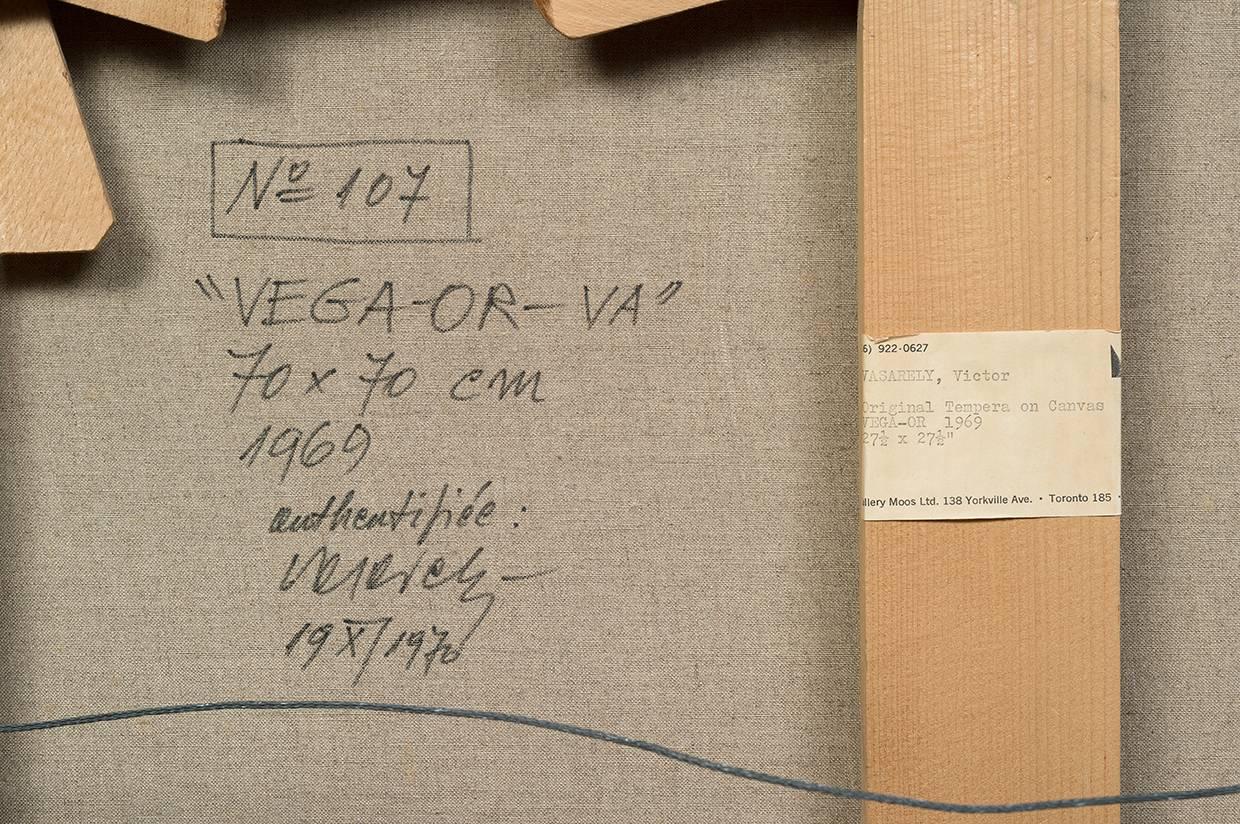 Nº 107
"VEGA-OR-VA"
70 x 70 cm
1969
authentifiée :
19 X/1970
6) 922-0627
VASARELY, Victor
Original Tempera on Canvas
VEGA-OR 1969
27½ x 27½"
llery Moos Ltd. 138 Yorkville Ave. • Toronto 185 •